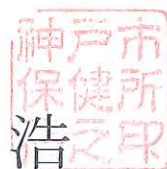 神戸市
保健所
之印
浩